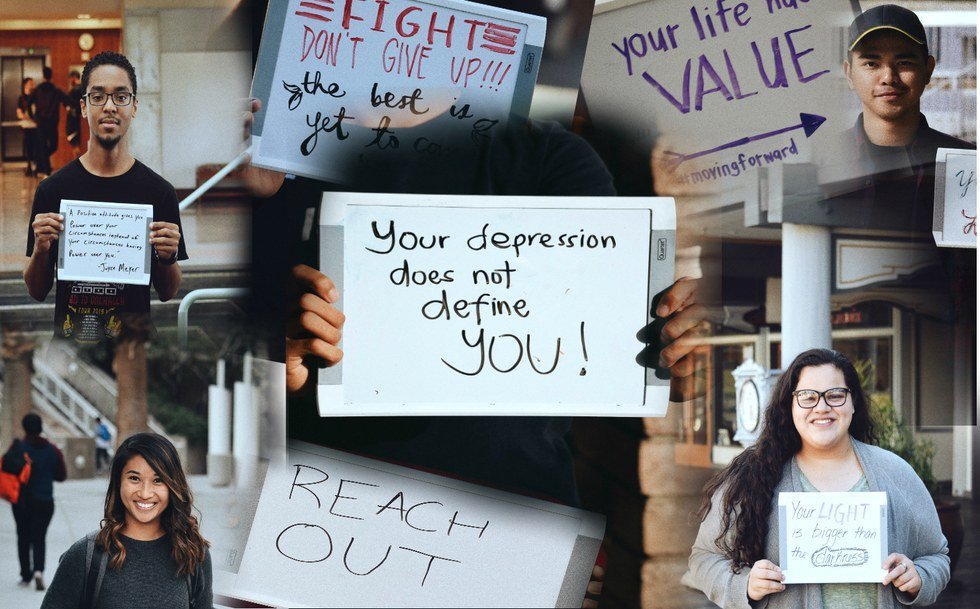 FIGHT
DON'T GIVE UP!!!
the best is
yet to
your life
VALUE
#movingforward
A Positive attitude gives you
Power over your
circumstances instead of
your circumstances having
Power over you."
-Joyce Meyer
Your depression
does not
define
YOU!
REACH
OUT
Your LIGHT
is bigger than
the darkness